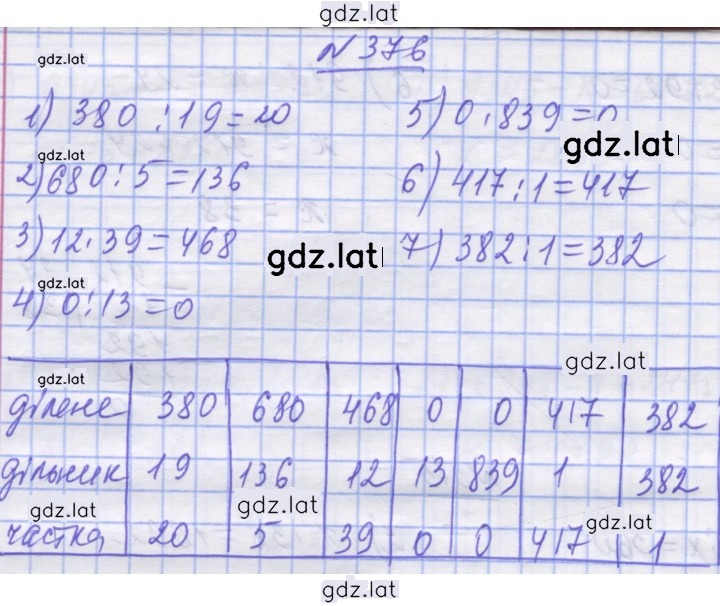 gdz.lat
№376
gdz.lat
1) 380 : 19 = 20
5) 0 · 839 = 0
gdz.lat
2) 680 : 5 = 136
6) 417 : 1 = 417
3) 12 · 39 = 468
7) 382 : 1 = 382
gdz.lat
4) 0 : 13 = 0
gdz.lat
gdz.lat
ділене 380 680 468 0 0 417 382
дільник 19 136 12 13 839 1 382
gdz.lat
gdz.lat
gdz.lat
частка 20 5 39 0 0 417 1
gdz.lat